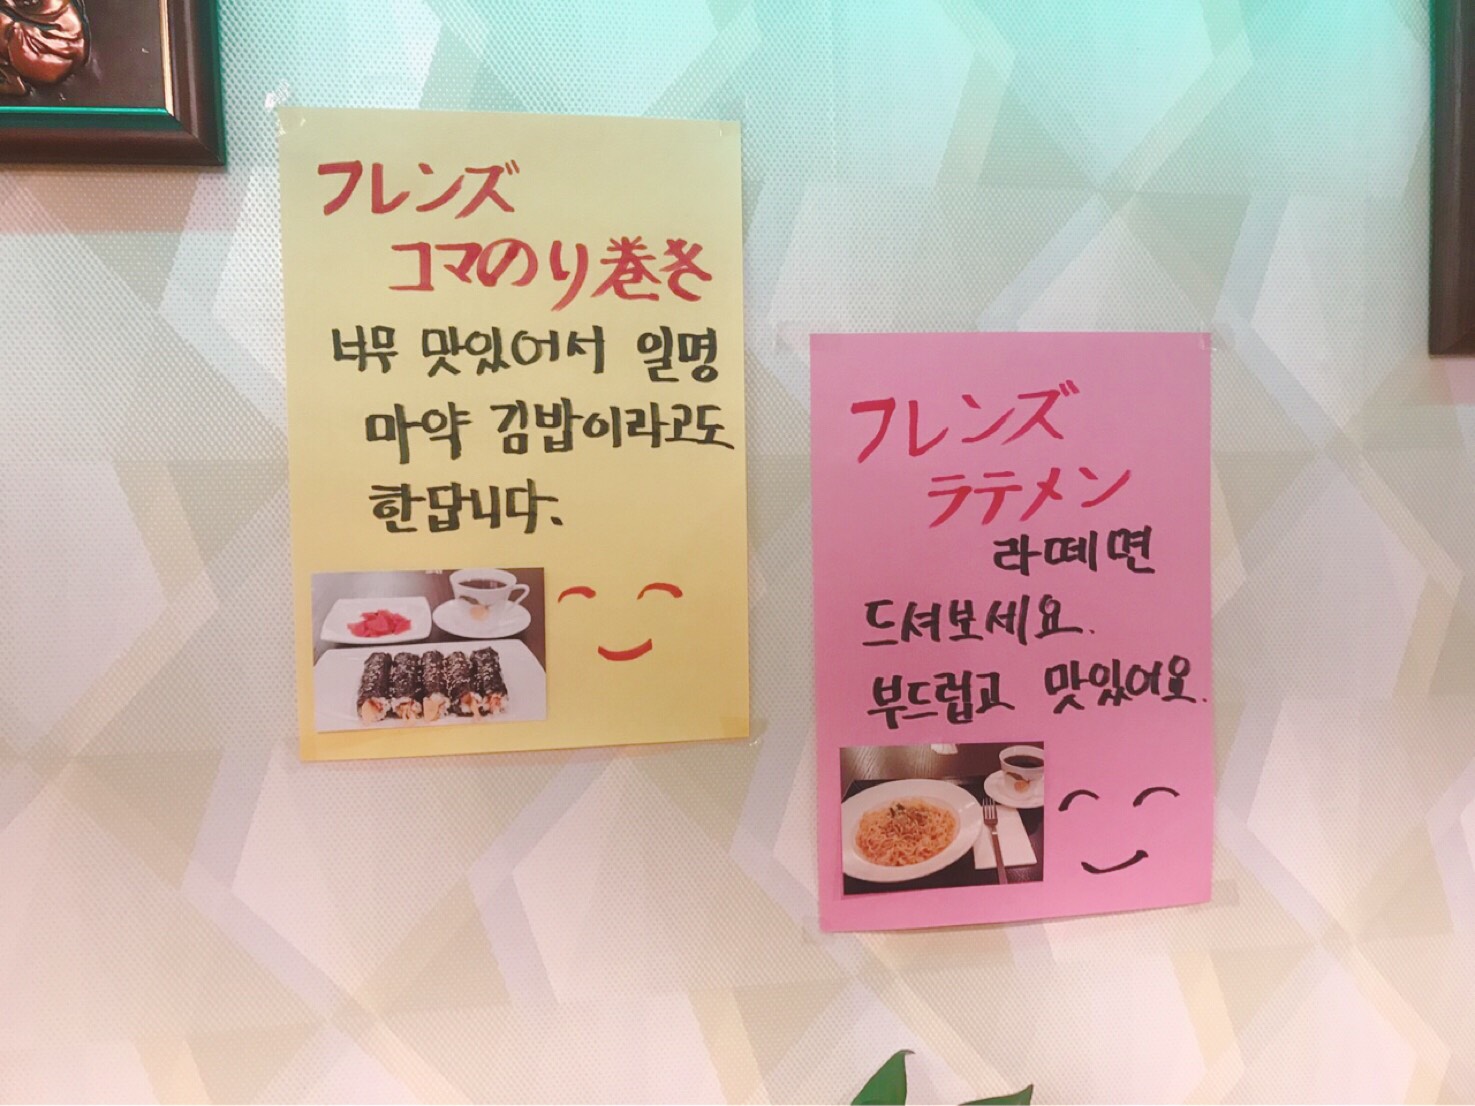 フレンズ
コマのり巻き
너무 맛있어서 일명
마약 김밥이라고도
한답니다.
フレンズ
ラテメン
라떼면
드셔보세요.
부드럽고 맛있어요.